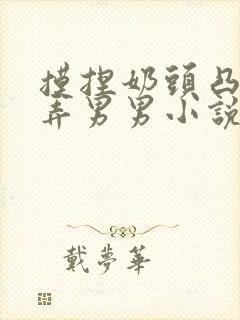 摸捏奶頭凸
弄男男小說
戴夢華